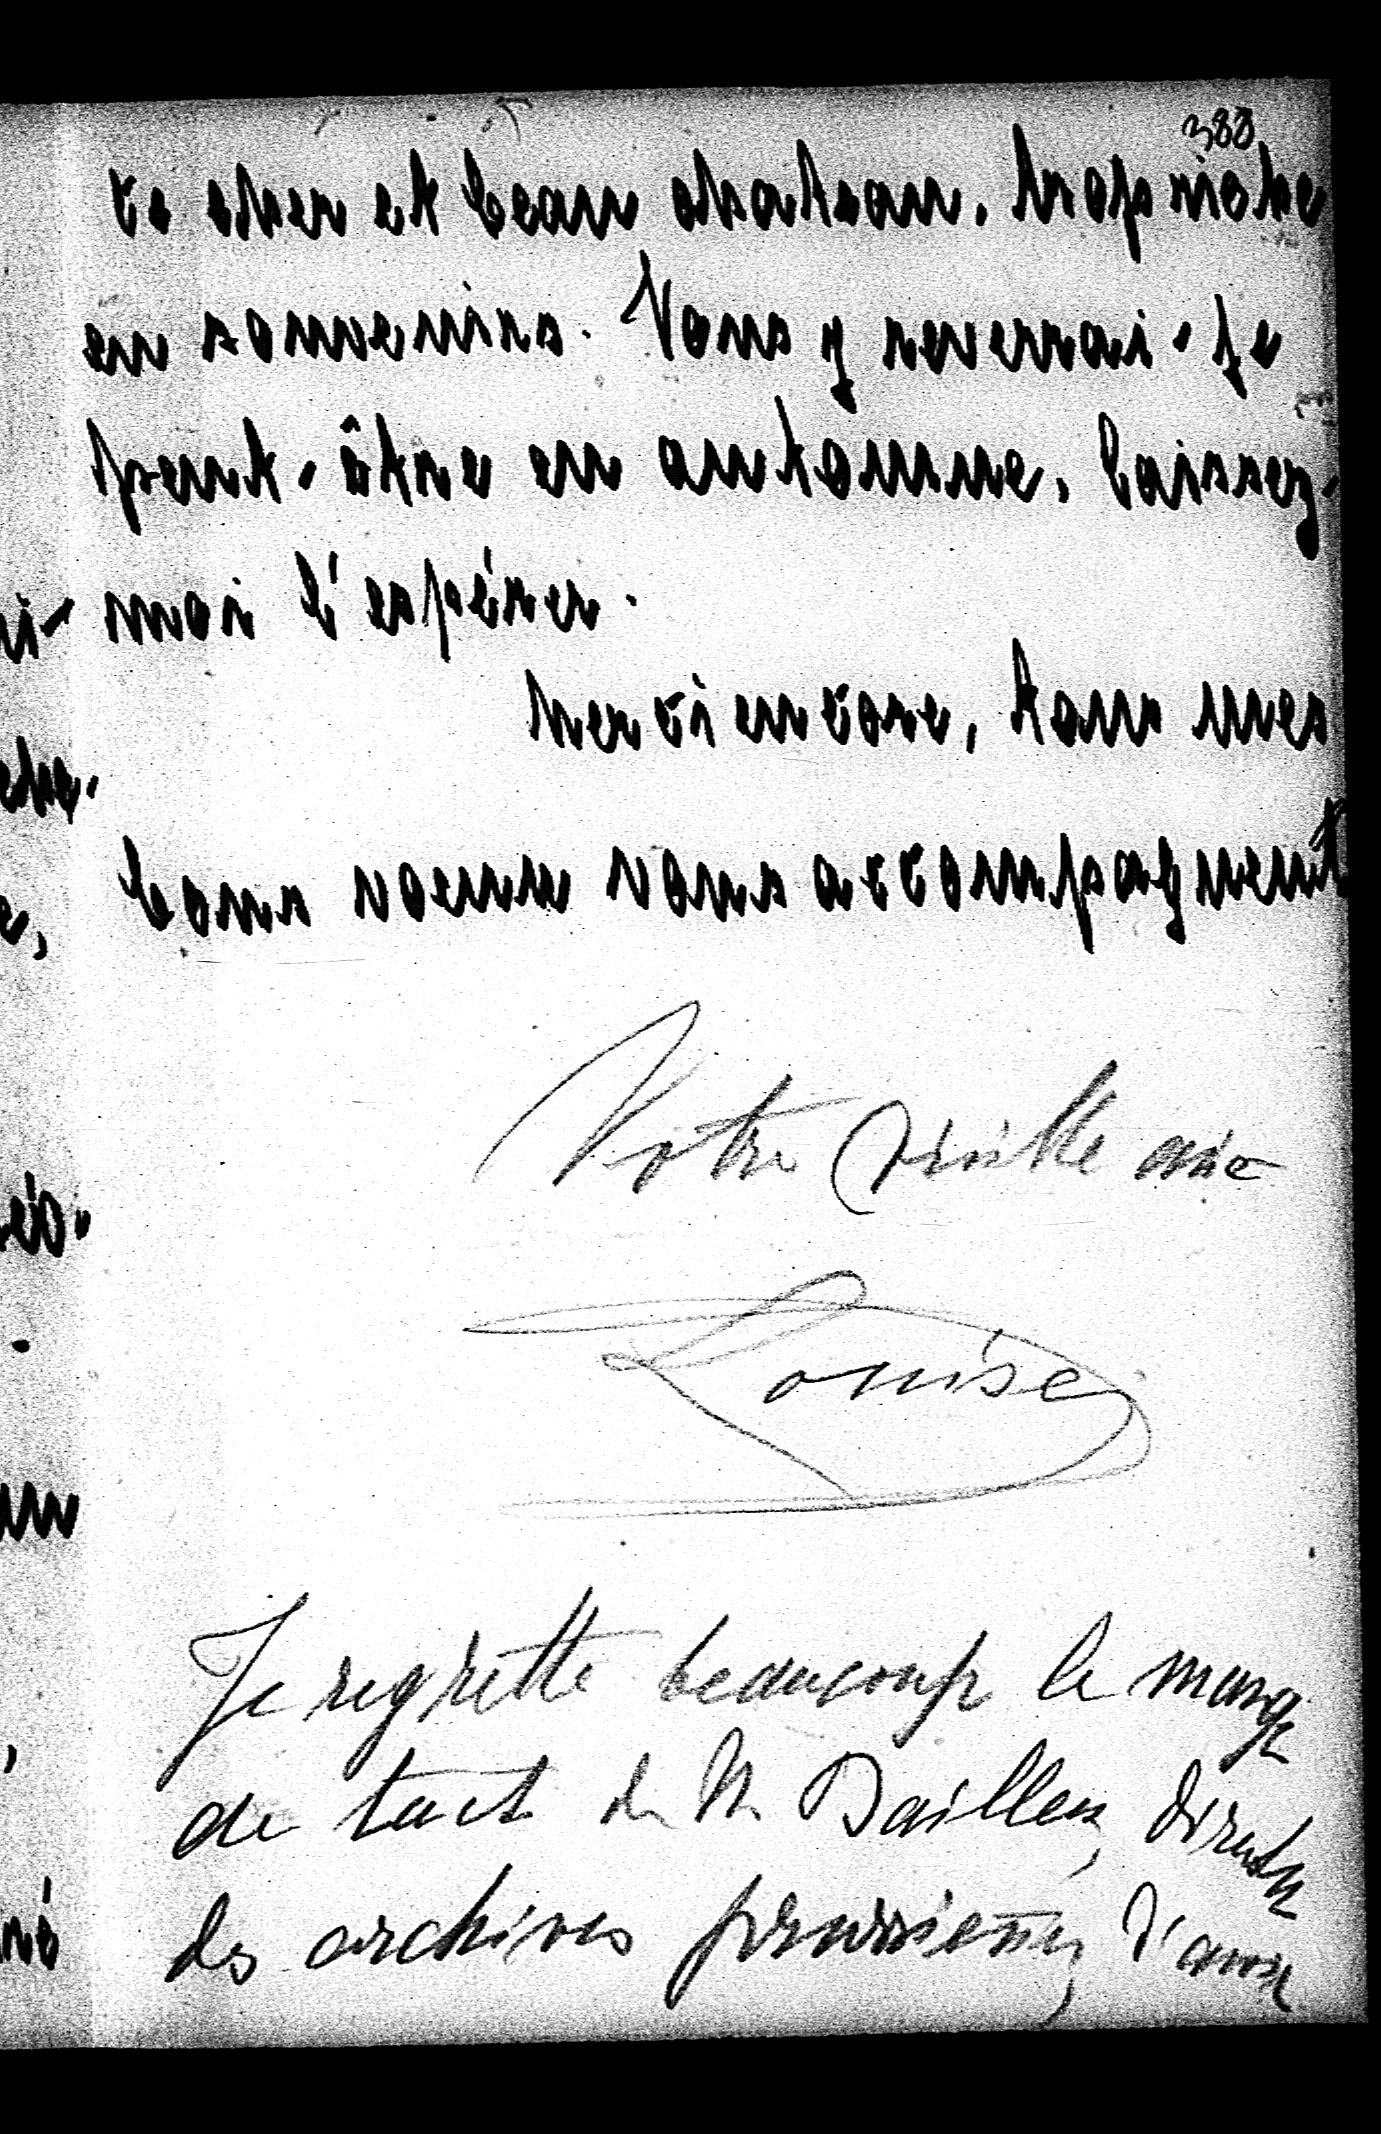 388
ce cher et beau chateau, trop riche
en souvenirs. Vous y reverrai-je
peut-être en automne, laissez-
moi l'espérer.
Merci encore, tous mes
bons voeux vous accompagnent
Votre vieille amie
Louise
Je regrette beaucoup le manque
de tact de M. Bailleu, directeur
des archives prussiennes, d'avoir